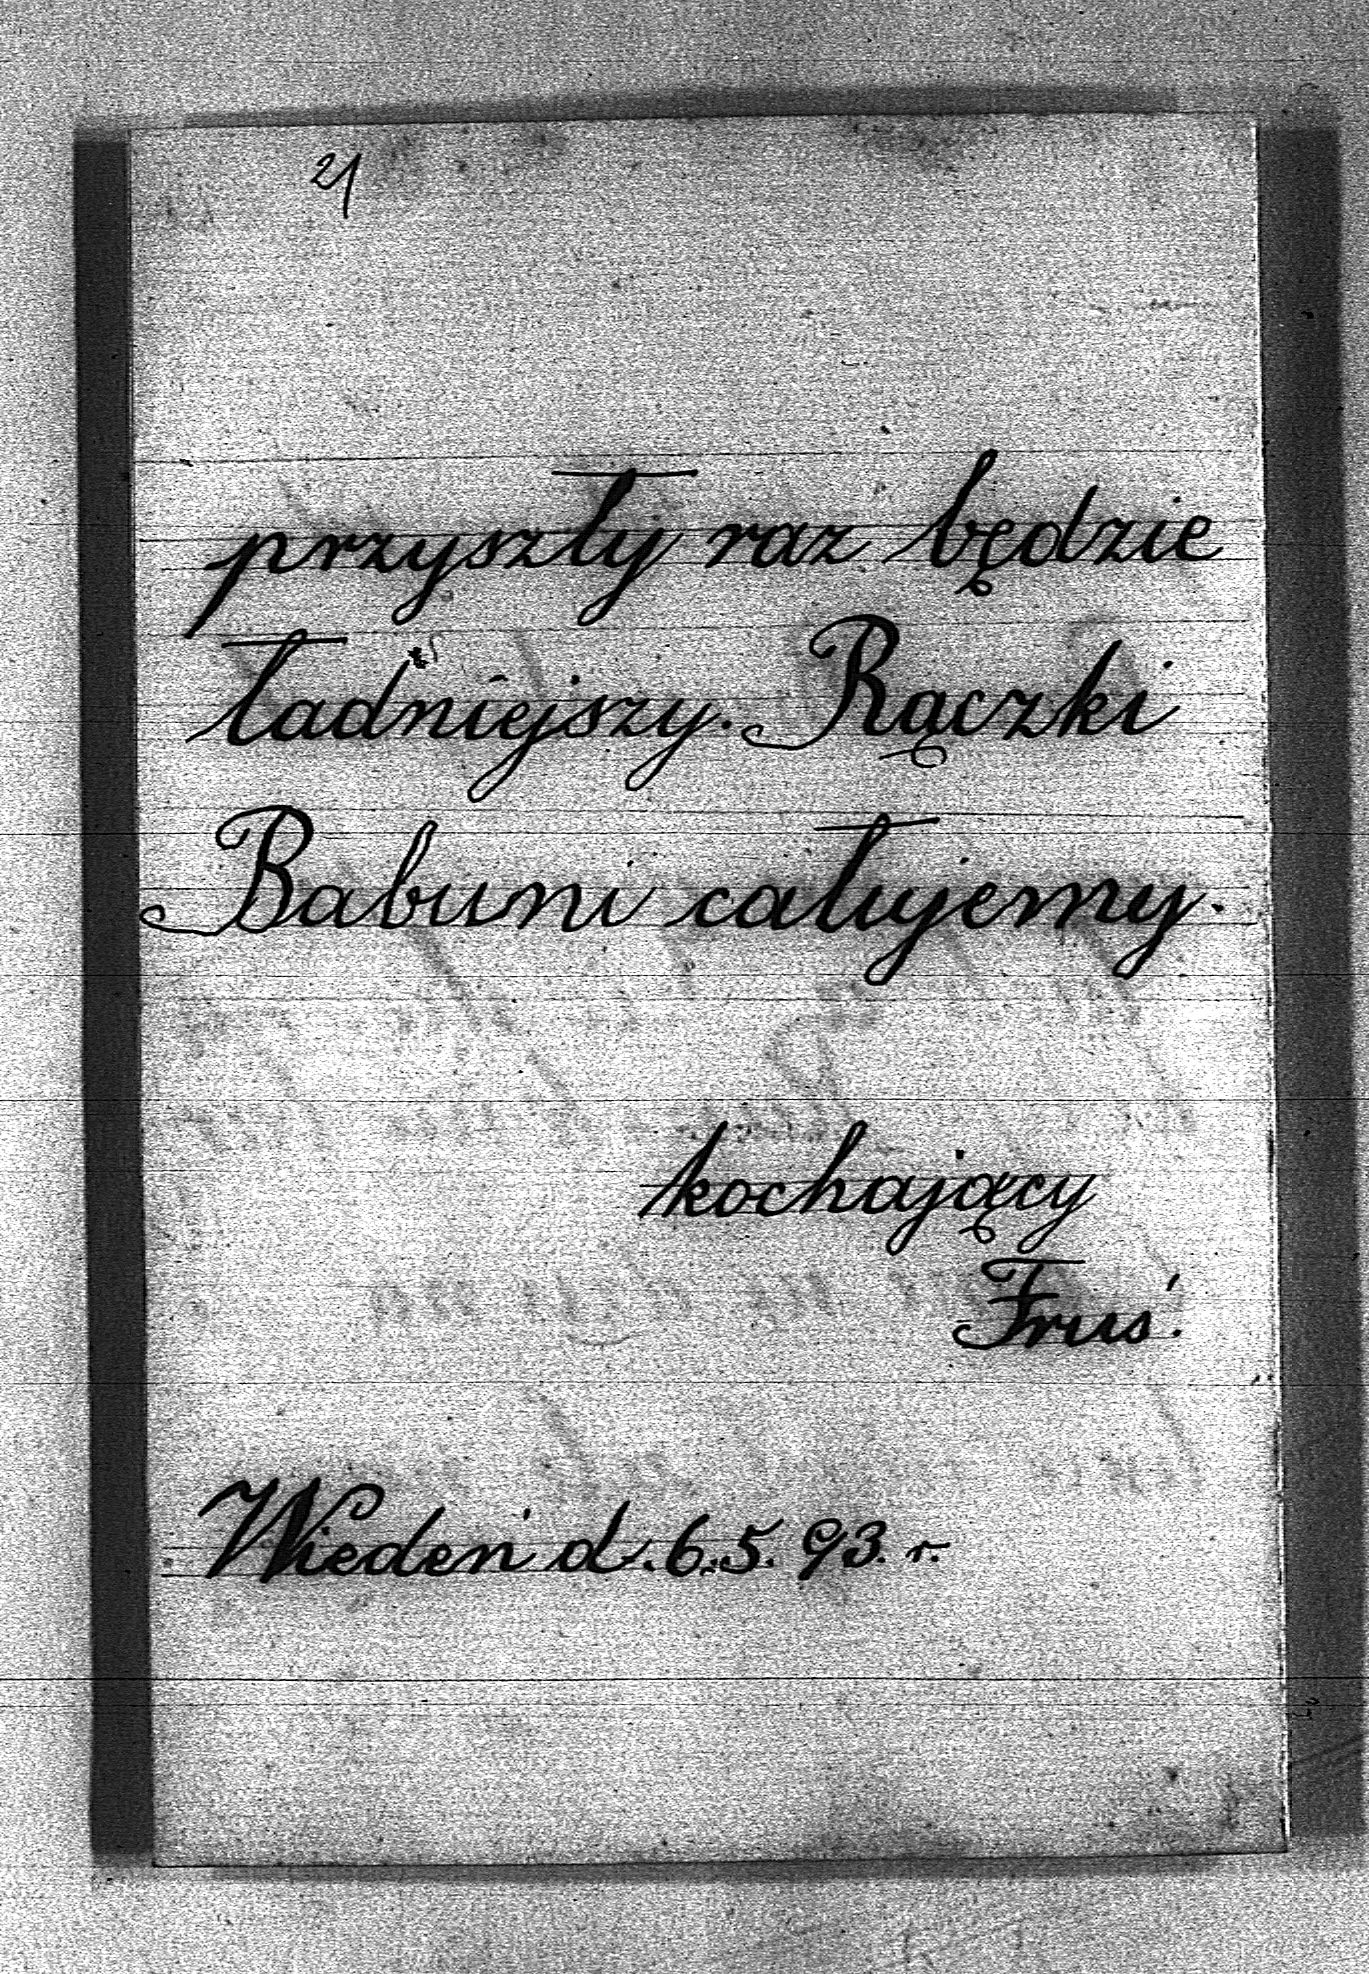 21
przyszły raz będzie
ładniejszy. Rączki
Babuni całujemy.
kochający
Fruś.
Wiedeń d. 6.5. 93. r.